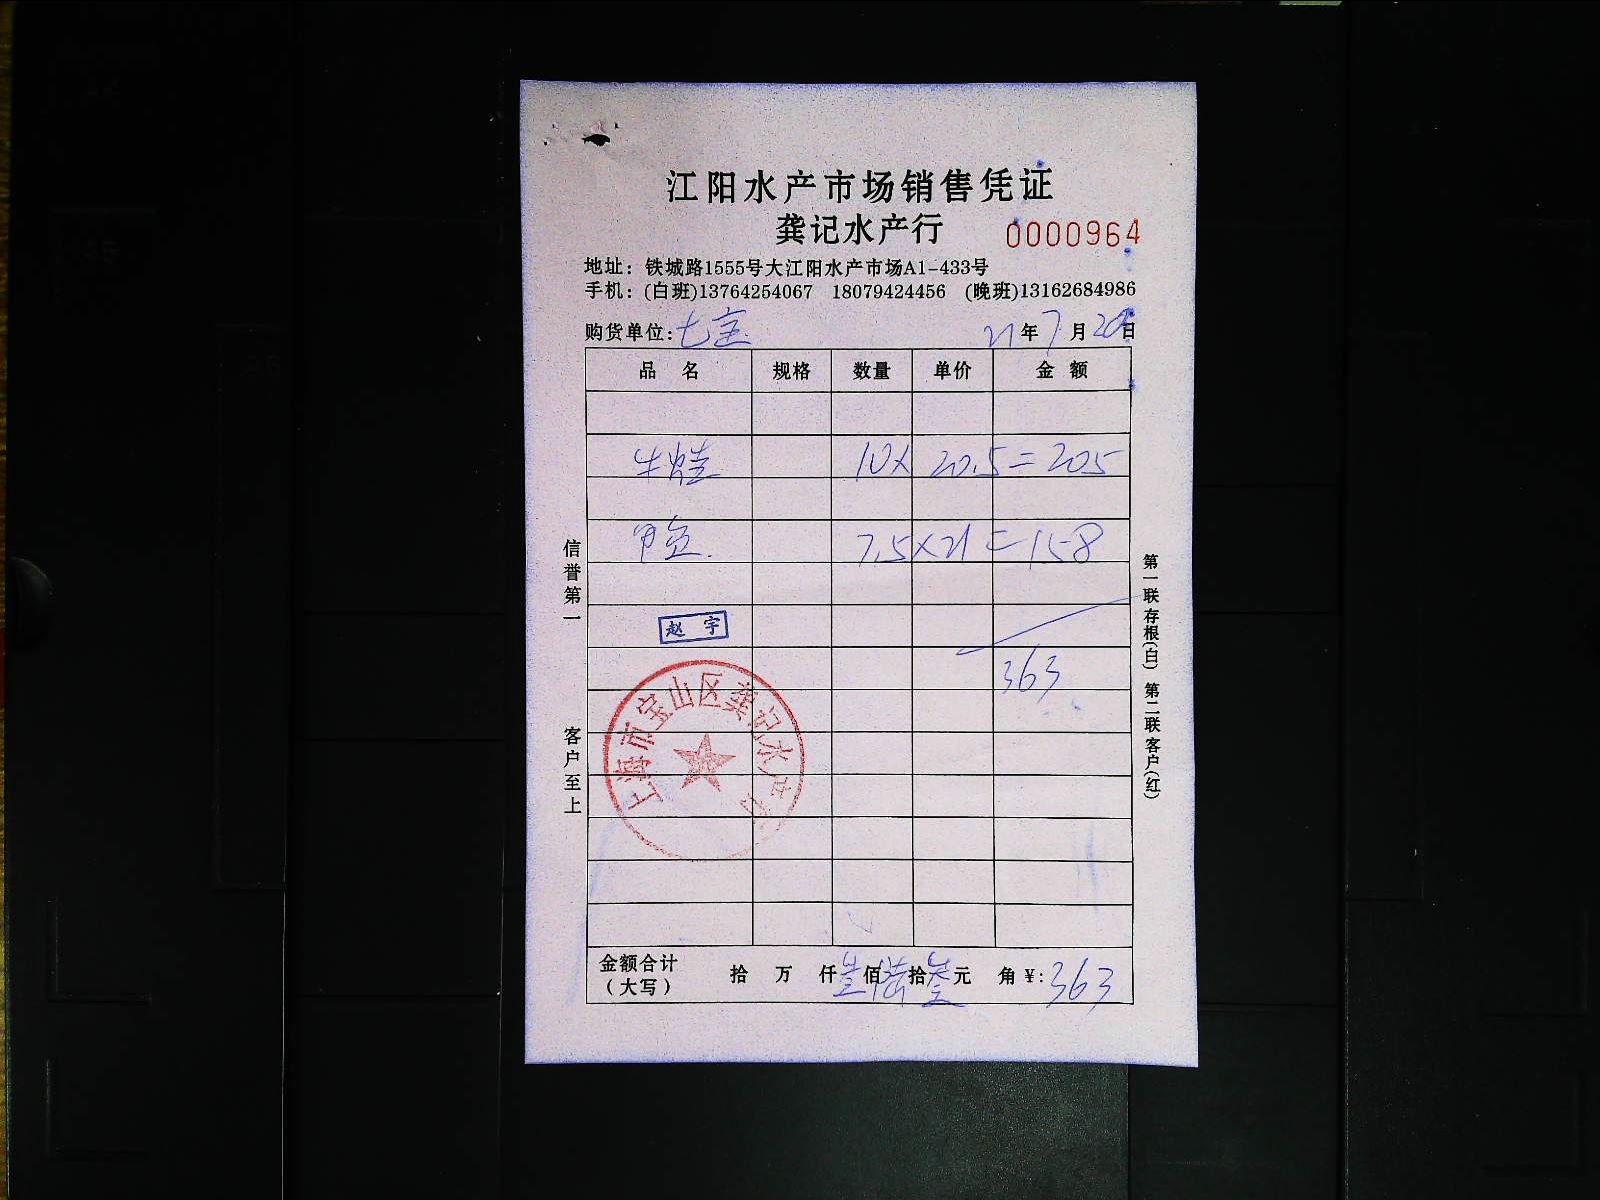 江阳水产市场销售凭证
龚记水产行 0000964
地址：铁城路1555号大江阳水产市场A1-433号
手机：(白班)13764254067 18079424456 (晚班)13162684986
购货单位：七宝 21年7月20日
品名 规格 数量 单价 金额
牛蛙 10× 20.5=205
甲鱼 7.5×21=158
赵宇
363
上海市宝山区龚记水产行
信誉第一 客户至上
第一联存根(白) 第二联客户(红)
金额合计（大写） 拾 万 仟叁佰陆拾叁元 角￥:363